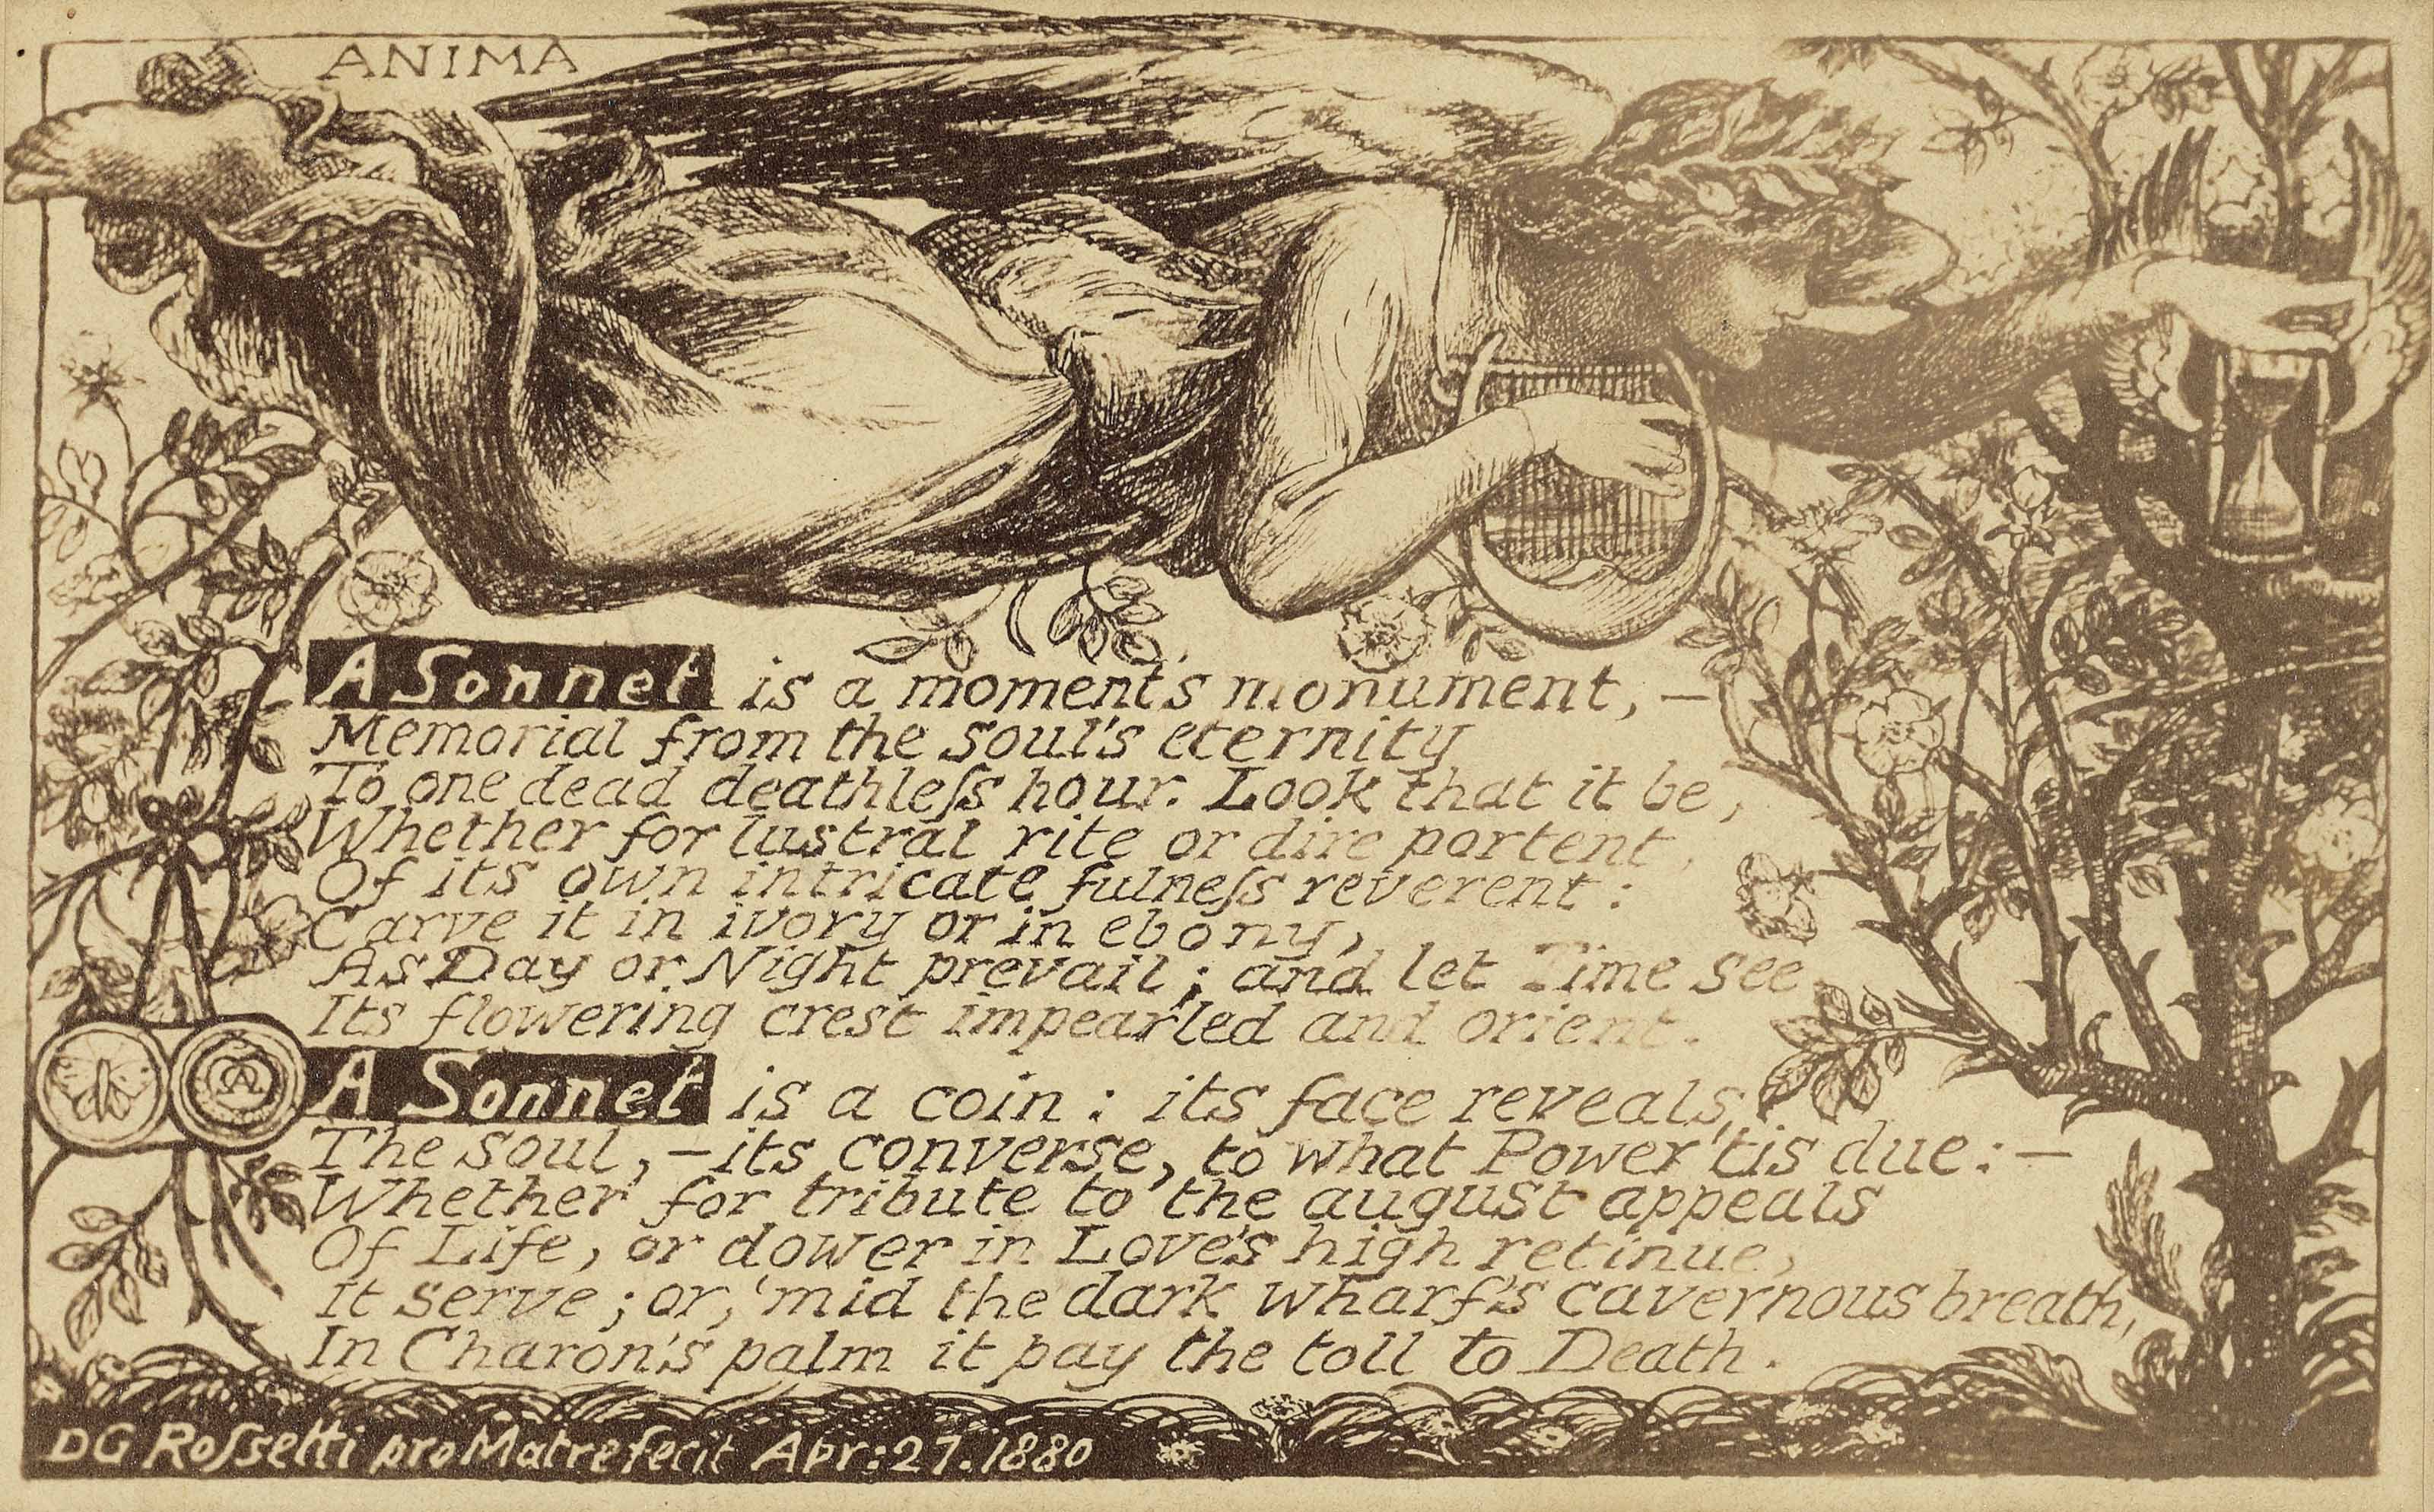 ANIMA
A Sonnet is a moment's monument, —
Memorial from the soul's eternity
To one dead deathleſs hour. Look that it be,
Whether for lustral rite or dire portent,
Of its own intricate fulneſs reverent:
Carve it in ivory or in ebony,
As Day or Night prevail; and let Time see
Its flowering crest impearled and orient.
A Sonnet is a coin: its face reveals
The soul, — its converse, to what Power 'tis due: —
Whether for tribute to the august appeals
Of Life, or dower in Love's high retinue,
It serve; or, 'mid the dark wharf's cavernous breath,
In Charon's palm it pay the toll to Death.
DG Roſsetti pro Matre fecit Apr: 27. 1880